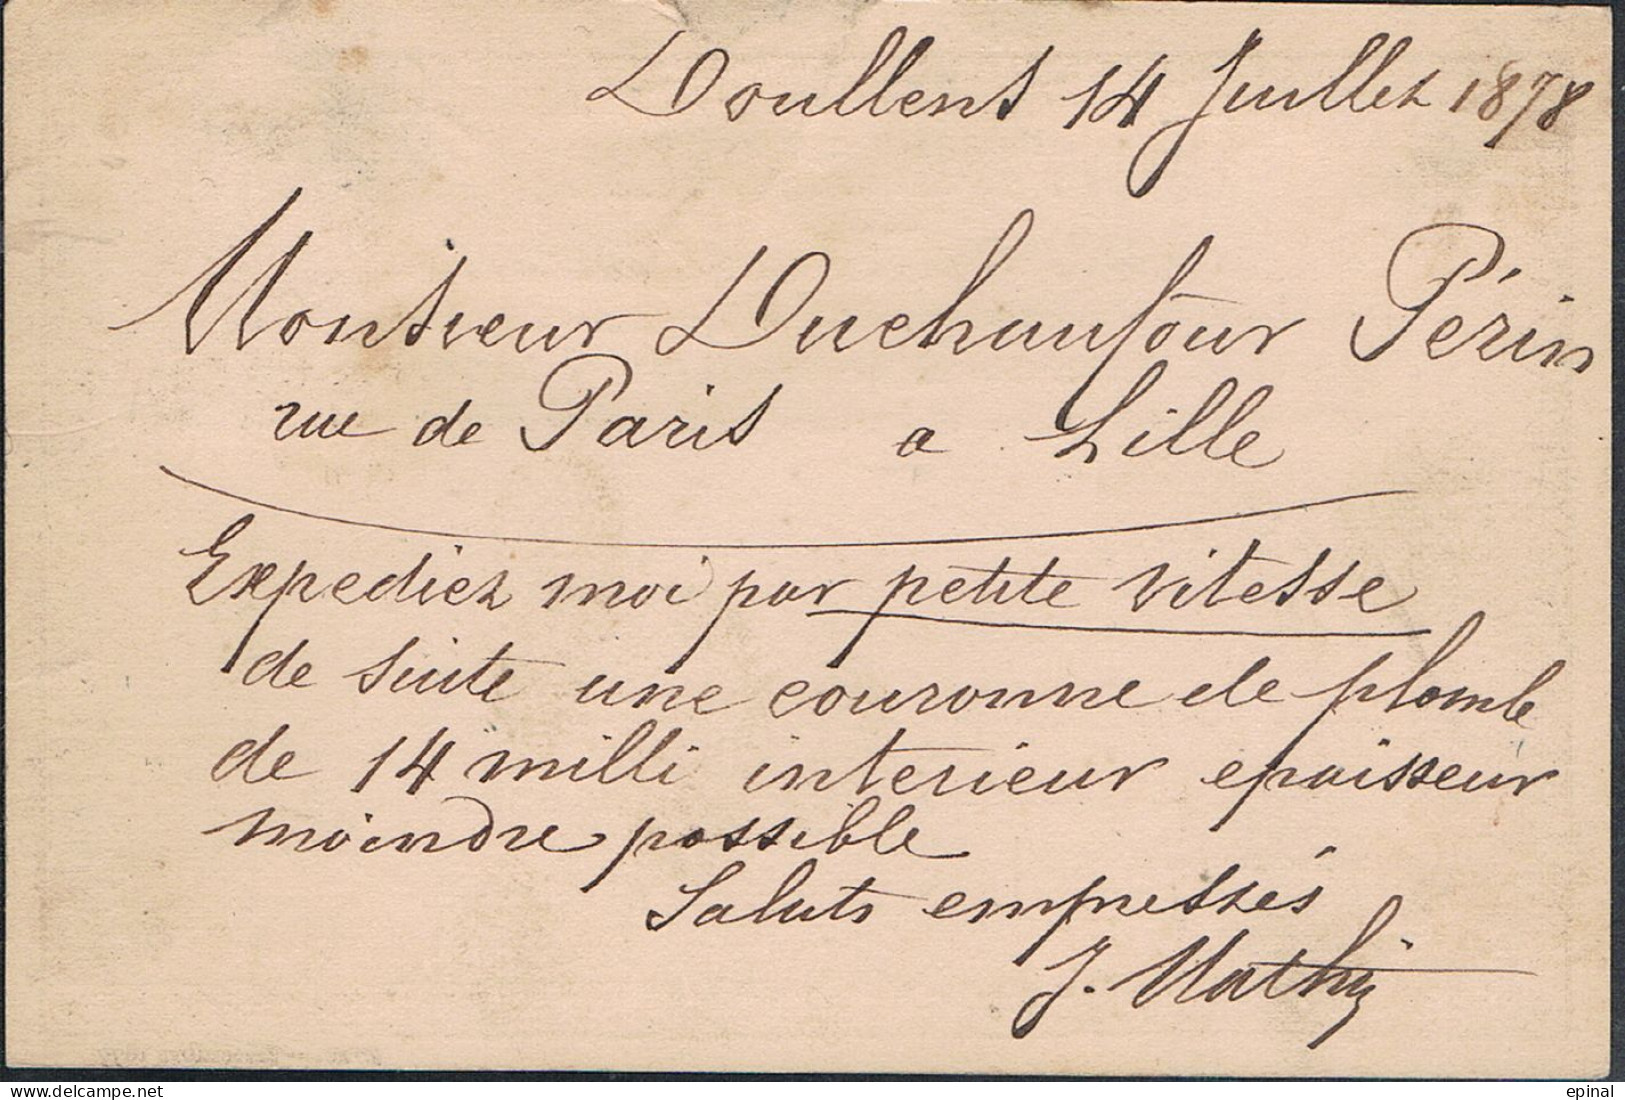 Doullens 14 Juillet 1878
Monsieur Duchaufour Périn
rue de Paris a Lille
Expediez moi par petite vitesse
de suite une couronne de plomb
de 14 milli interieur epaisseur
moindre possible
Saluts empressés
J. Mathy
epinal